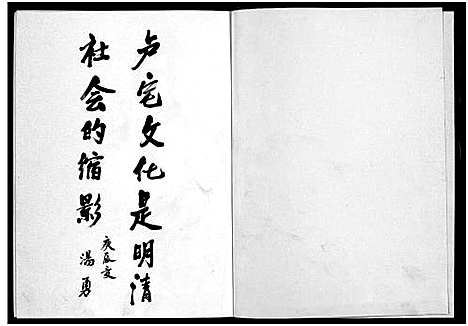 卢宅文化是明清
社会的缩影
庚辰夏
汤勇